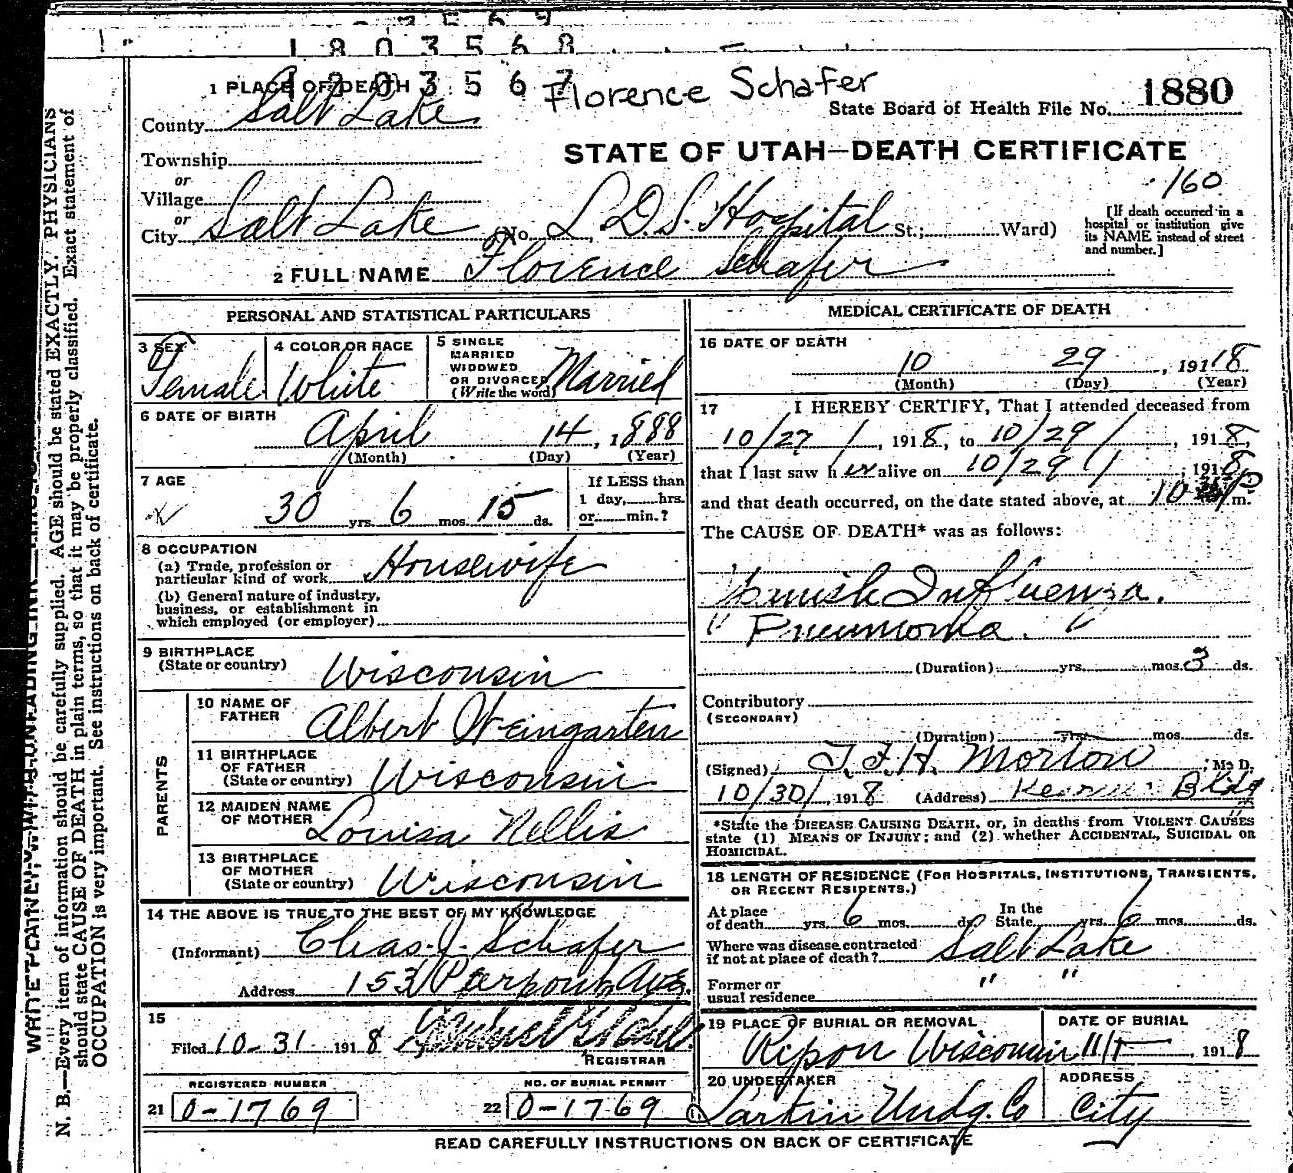 1803568
1803567
Florence Schafer
1 PLACE OF DEATH
State Board of Health File No. 1880
County Salt Lake
STATE OF UTAH—DEATH CERTIFICATE
Township
or
160
Village
or
City Salt Lake No. L.D.S. Hospital St.; Ward)
[If death occurred in a hospital or institution give its NAME instead of street and number.]
2 FULL NAME Florence Schafer
PERSONAL AND STATISTICAL PARTICULARS
3 SEX Female
4 COLOR OR RACE White
5 SINGLE
MARRIED
WIDOWED
OR DIVORCED
(Write the word) Married
6 DATE OF BIRTH
April 14, 1888
(Month) (Day) (Year)
7 AGE
30 yrs. 6 mos. 15 ds.
If LESS than
1 day, hrs.
or min.?
8 OCCUPATION
(a) Trade, profession or
particular kind of work Housewife
(b) General nature of industry,
business, or establishment in
which employed (or employer)
9 BIRTHPLACE
(State or country) Wisconsin
PARENTS
10 NAME OF
FATHER Albert Weingarten
11 BIRTHPLACE
OF FATHER
(State or country) Wisconsin
12 MAIDEN NAME
OF MOTHER Louisa Nellis
13 BIRTHPLACE
OF MOTHER
(State or country) Wisconsin
14 THE ABOVE IS TRUE TO THE BEST OF MY KNOWLEDGE
(Informant) Chas. J. Schafer
Address 153 Pierpont Ave.
15
Filed 10-31 1918
REGISTRAR
REGISTERED NUMBER
21 0-1769
NO. OF BURIAL PERMIT
22 0-1769
MEDICAL CERTIFICATE OF DEATH
16 DATE OF DEATH
10 29, 1918
(Month) (Day) (Year)
17 I HEREBY CERTIFY, That I attended deceased from
10/27/, 1918, to 10/29/, 1918,
that I last saw her alive on 10/29/, 1918,
and that death occurred, on the date stated above, at 10 P m.
The CAUSE OF DEATH* was as follows:
Spanish Influenza.
" Pneumonia.
(Duration) yrs. mos. 3 ds.
Contributory
(SECONDARY)
(Duration) yrs. mos. ds.
(Signed) T.F.H. Morton, M. D.
10/30/, 1918 (Address) Bldg
*State the DISEASE CAUSING DEATH, or, in deaths from VIOLENT CAUSES
state (1) MEANS OF INJURY; and (2) whether ACCIDENTAL, SUICIDAL OR
HOMICIDAL.
18 LENGTH OF RESIDENCE (FOR HOSPITALS, INSTITUTIONS, TRANSIENTS,
OR RECENT RESIDENTS.)
At place
of death yrs. 6 mos. ds. In the
State yrs. 6 mos. ds.
Where was disease contracted
if not at place of death? Salt Lake
Former or
usual residence " "
19 PLACE OF BURIAL OR REMOVAL
Ripon Wisconsin
DATE OF BURIAL
11/5, 1918
20 UNDERTAKER
Larkin Undg. Co
ADDRESS
City
READ CAREFULLY INSTRUCTIONS ON BACK OF CERTIFICATE
N. B.—Every item of information should be carefully supplied. AGE should be stated EXACTLY. PHYSICIANS
should state CAUSE OF DEATH in plain terms, so that it may be properly classified. Exact statement of
OCCUPATION is very important. See instructions on back of certificate.